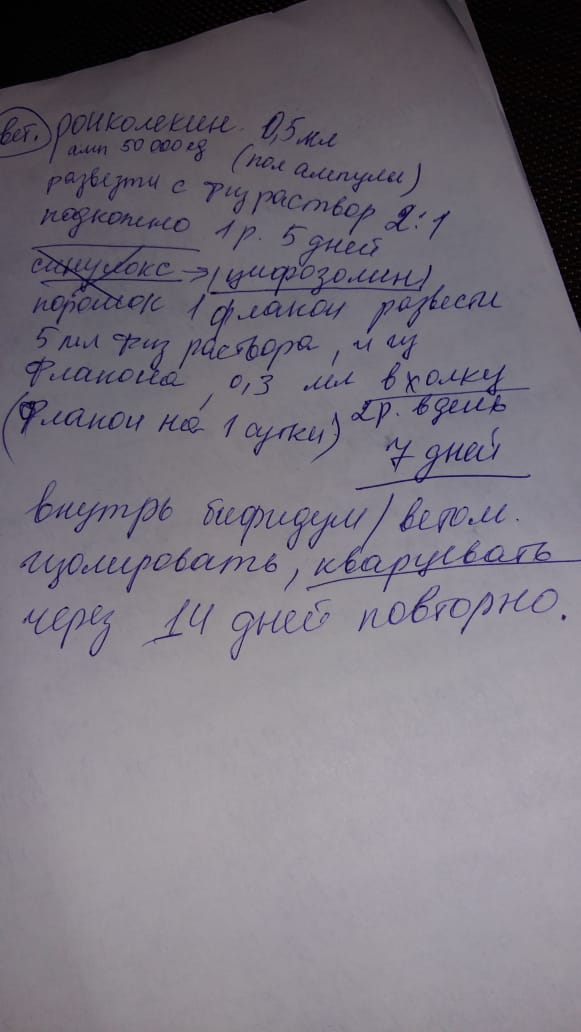 вет. ронколекин. 0,5 мл
амп 50 000 ед (пол ампулы)
развезти с физ раствор 2:1
подкожно 1 р. 5 дней
синулокс → цифозолин
порошок 1 флакон развести
5 мл физ раствора, из
флакона, 0,3 мл в холку
(Флакон на 1 сутки) 2р. в день
7 дней
внутрь бифидум/ветом.
изолировать, кварцевать
через 14 дней повторно.